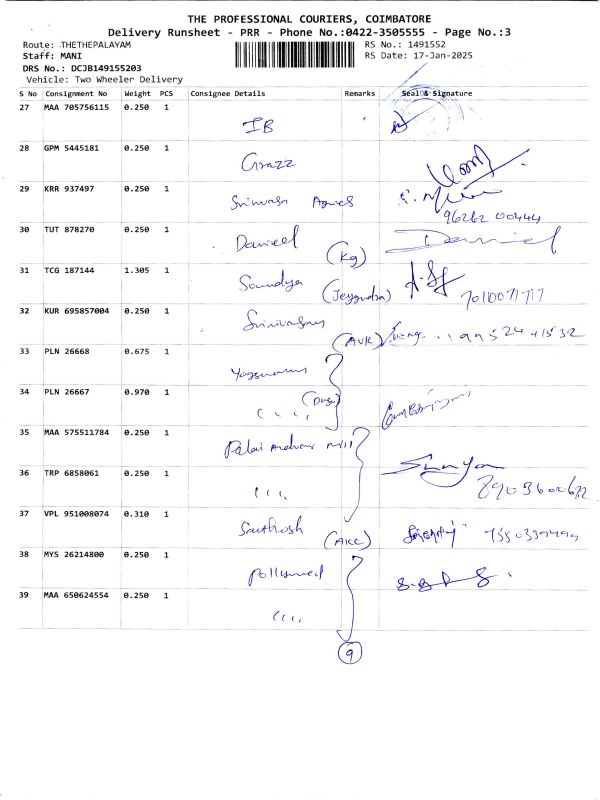 THE PROFESSIONAL COURIERS, COIMBATORE
Delivery Runsheet - PRR - Phone No.:0422-3505555 - Page No.:3
Route: THETHEPALAYAM RS No.: 1491552
Staff: MANI RS Date: 17-Jan-2025
DRS No.: DCJB149155203
Vehicle: Two Wheeler Delivery
S No Consignment No Weight PCS Consignee Details Remarks Seal & Signature
27 MAA 705756115 0.250 1
IB
28 GPM 5445181 0.250 1
Grazz
29 KRR 937497 0.250 1
96262 00444
30 TUT 878270 0.250 1
Daniel (Kg) Daniel
31 TCG 187144 1.305 1
Soundya 7010071717
32 KUR 695857004 0.250 1
Srinivasan (AVK) 99524 41532
33 PLN 26668 0.675 1
34 PLN 26667 0.970 1
35 MAA 575511784 0.250 1
Palai Andvar mill
36 TRP 6858061 0.250 1
37 VPL 951008074 0.310 1
Santhosh (AKC)
38 MYS 26214800 0.250 1
Pollymed
39 MAA 650624554 0.250 1
9